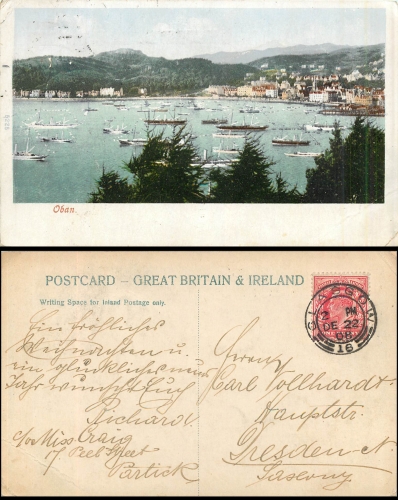 Oban
POSTCARD – GREAT BRITAIN & IRELAND
Writing Space for Inland Postage only.
Ein fröhliches
Weihnachten u.
ein glückliches neues
Jahr wünscht Euch
Richard.
c/o Miss Craig
17 Peel Street
Partick
Carl Vollhardt
Hauptstr.
Dresden-N.
Saxony.
GLASGOW
PM
DE 22
16